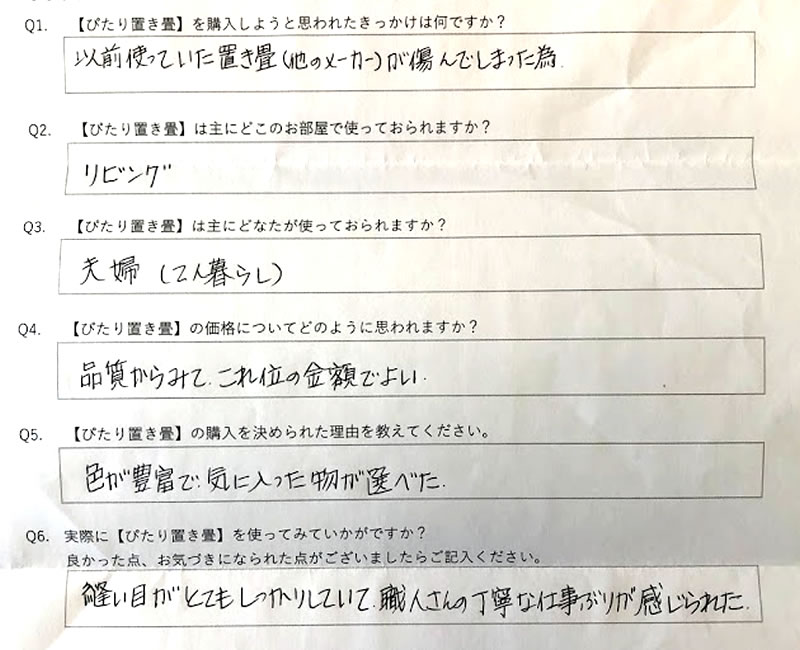 Q1. 【ぴたり置き畳】を購入しようと思われたきっかけは何ですか？
以前使っていた置き畳(他のメーカー)が傷んでしまった為.
Q2. 【ぴたり置き畳】は主にどこのお部屋で使っておられますか？
リビング
Q3. 【ぴたり置き畳】は主にどなたが使っておられますか？
夫婦(2人暮らし)
Q4. 【ぴたり置き畳】の価格についてどのように思われますか？
品質からみて.これ位の金額でよい.
Q5. 【ぴたり置き畳】の購入を決められた理由を教えてください。
色が豊富で.気に入った物が選べた.
Q6. 実際に【ぴたり置き畳】を使ってみていかがですか？
良かった点、お気づきになられた点がございましたらご記入ください。
縫い目がとてもしっかりしていて.職人さんの丁寧な仕事ぶりが感じられた.